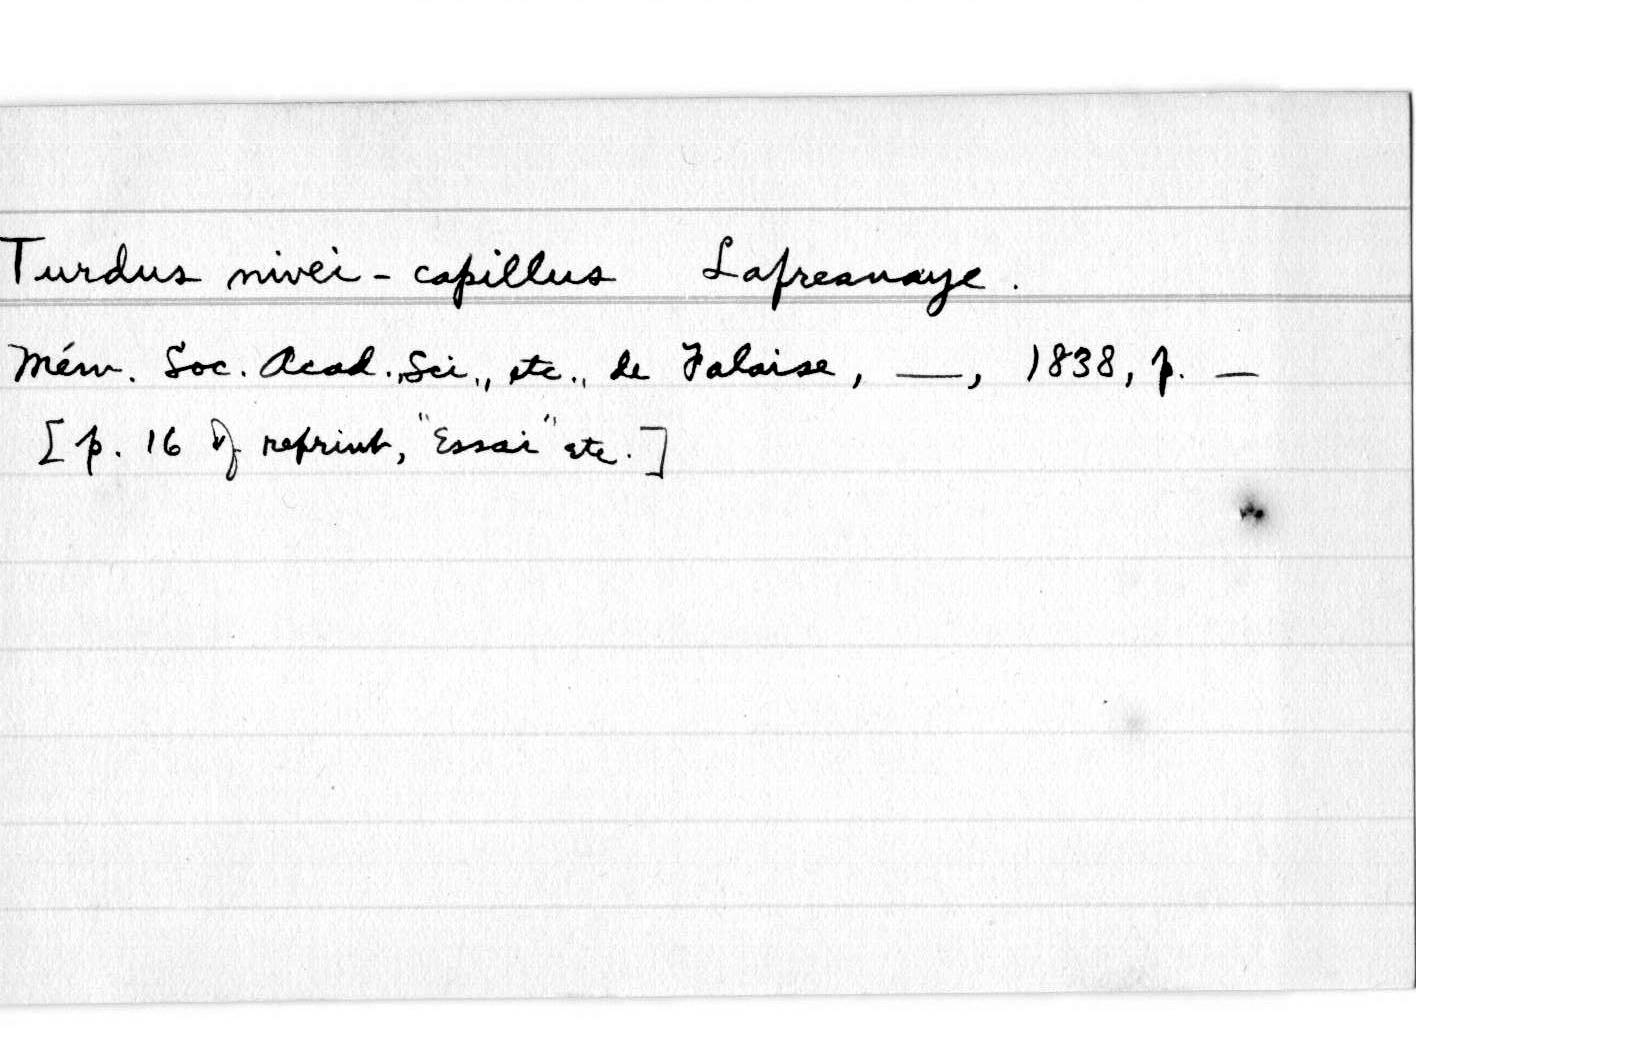 Turdus nivei-capillus Lafresnaye.
Mém. Soc. Acad., Sci., etc., de Falaise, —, 1838, p. —
[p. 16 of reprint, "Essai" etc.]